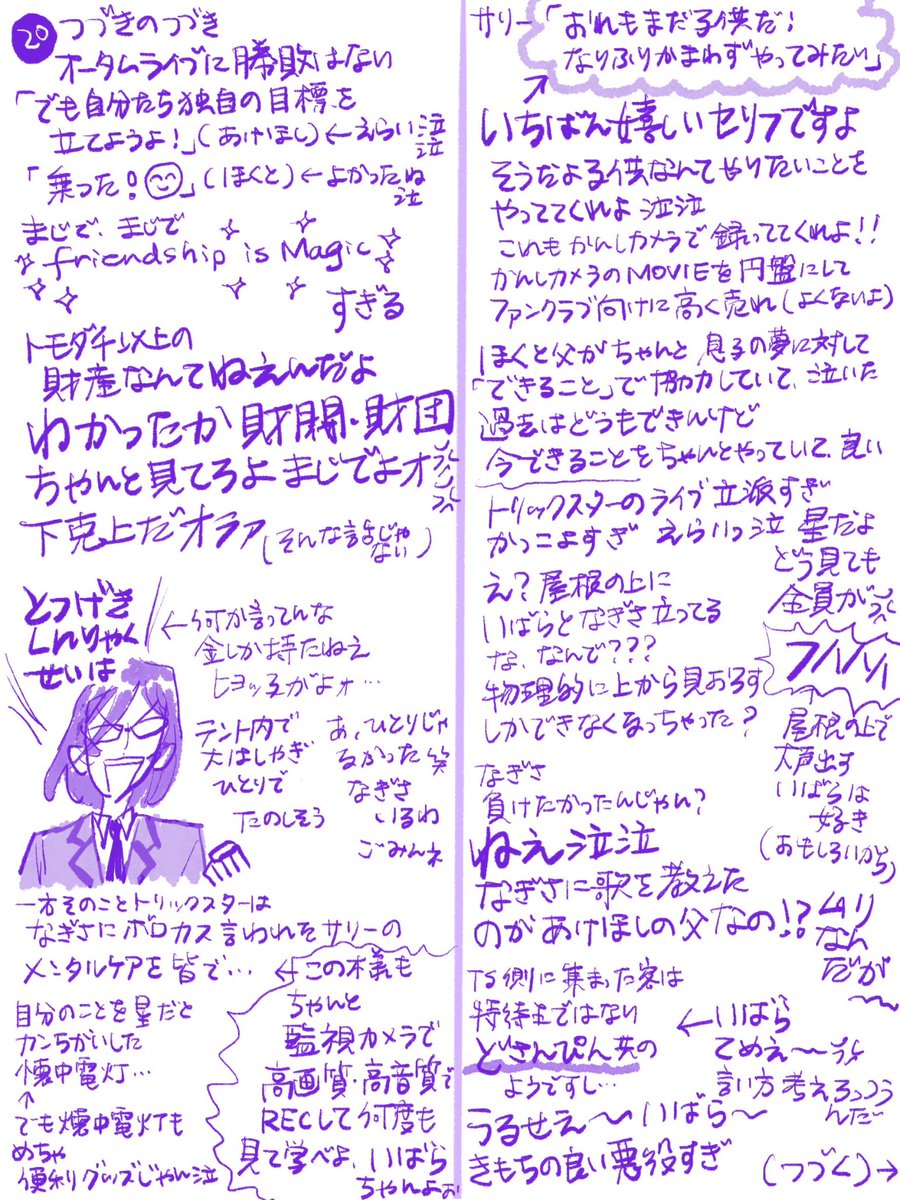 20
つづきのつづき
オータムライブに勝敗はない
「でも自分たち独自の目標を
立てようよ!」(あけほし)←えらい泣
泣
「乗った!😊」(ほくと)←よかったね
泣
まじで、まじで
friendship is Magic
すぎる
トモダチ以上の
財産なんてねえんだよ
わかったか財閥・財団
ちゃんと見てろよまじでよォ
下剋上だオラァ(そんな話じゃ
ない)
とつげき
しんりゃく
せいは
←何か言ってんな
金しか持たねえ
ヒヨッ子がよォ…
テント内で
大はしゃぎ
ひとりで
たのしそう
あ、ひとりじゃ
なかった笑
なぎさ
いるわ
ごみんネ
一方そのことトリックスターは
なぎさにボロカス言われたサリーの
メンタルケアを皆で…
←この様も
ちゃんと
監視カメラで
高画質・高音質で
RECして何度も
見て学べよ、いばら
ちゃんよぉ
自分のことを星だと
カンちがいした
懐中電灯…
↑
でも懐中電灯も
めちゃ
便利グッズじゃん泣
サリー「おれもまだ子供だ!
なりふりかまわずやってみたい」
いちばん嬉しいセリフですよ
そうだよ子供なんてやりたいことを
やっててくれよ泣泣
これもかんしカメラで録っててくれよ!!
かんしカメラのMOVIEを円盤にして
ファンクラブ向けに高く売れ(よくないよ)
ほくと父がちゃんと息子の夢に対して
「できること」で協力していて、泣いた
過去はどうもできんけど
今できることをちゃんとやっていて、良い
トリックスターのライブ立派すぎ
かっこよすぎ えらいっ泣 星だよ
どう見ても
全員が
え?屋根の上に
いばらとなぎさ立ってる
な、なんで???
物理的に上から見おろす
しかできなくなっちゃった?
フハハハ
屋根の上で
大声出す
いばらは
好き
(おもしろいから)
なぎさ
負けたかったんじゃん?
ねえ泣泣
なぎさに歌を教えた
のがあけほしの父なの!?
ムリ
なん
だが
TS側に集まった客は
特待生ではない
どさんぴん共の
ようですし…
←いばら
てめえ〜
言い方考えろっつう
んだ
うるせえ〜いばら〜
きもちの良い悪役すぎ
(つづく)→